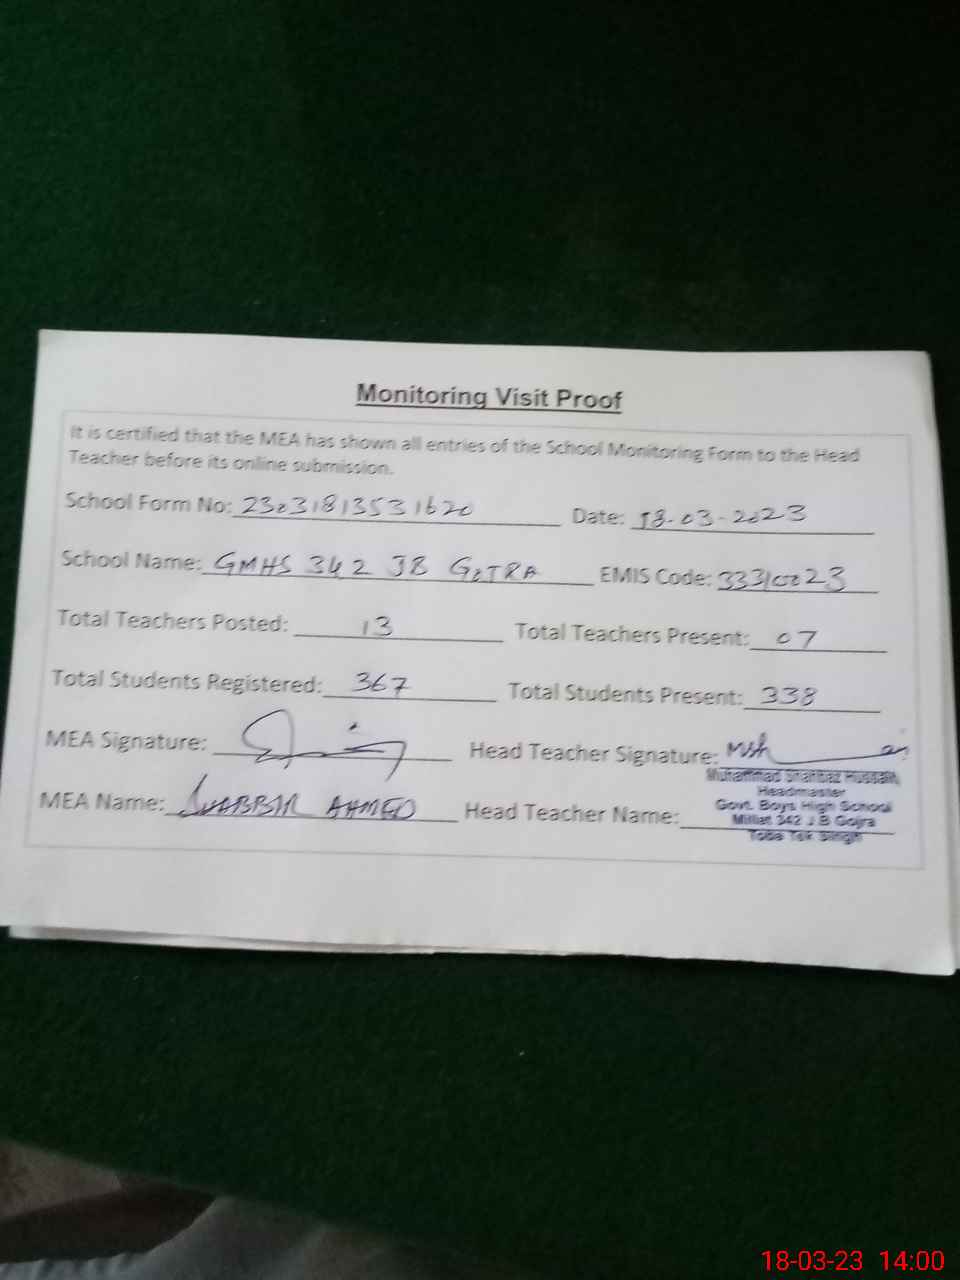 Monitoring Visit Proof
It is certified that the MEA has shown all entries of the School Monitoring Form to the Head
Teacher before its online submission.
School Form No: 23031813531620 Date: 18-03-2023
School Name: GMHS 342 JB GOJRA EMIS Code: 33310023
Total Teachers Posted: 13 Total Teachers Present: 07
Total Students Registered: 367 Total Students Present: 338
MEA Signature: Head Teacher Signature:
MEA Name: SHABBIR AHMED Head Teacher Name:
Muhammad Shahbaz Hussain
Headmaster
Govt. Boys High School
Millat 342 J B Gojra
Toba Tek Singh
18-03-23 14:00